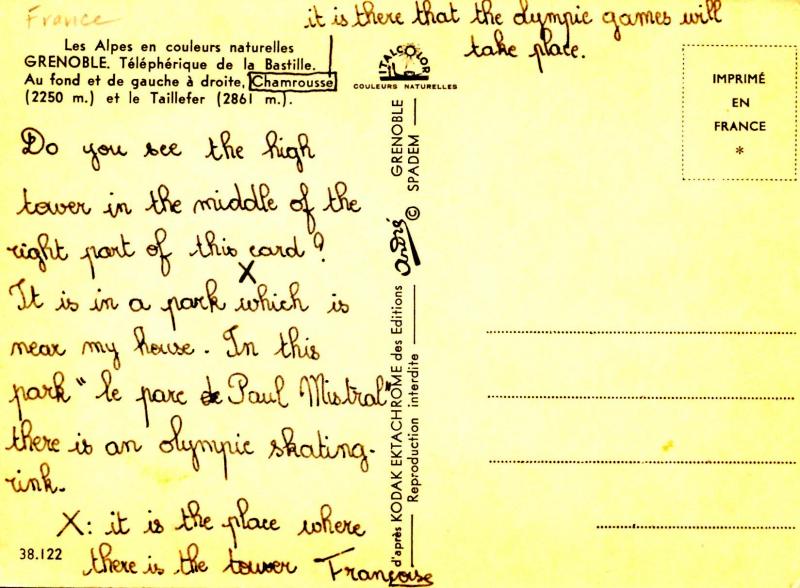 France
it is there that the olympic games will
take place.
Les Alpes en couleurs naturelles
GRENOBLE. Téléphérique de la Bastille.
Au fond et de gauche à droite, Chamrousse
(2250 m.) et le Taillefer (2861 m.).
ITALCOLOR
COULEURS NATURELLES
IMPRIMÉ
EN
FRANCE
*
Do you see the high
tower in the middle of the
right part of this card ?
X
It is in a park which is
near my house. In this
park " le parc de Paul Mistral"
there is an olympic skating-
rink.
X: it is the place where
there is the tower Françoise
38.122
d'après KODAK EKTACHROME des Editions André © GRENOBLE
Reproduction interdite SPADEM